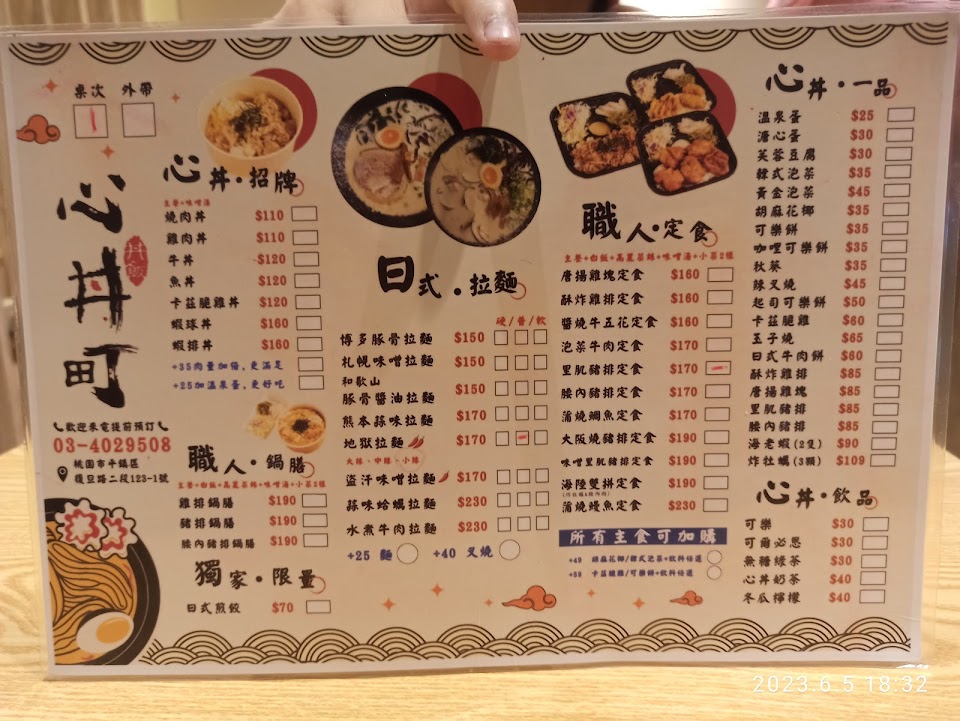 桌次 外帶
心丼町
丼飯
歡迎來電提前預訂
03-4029508
桃園市平鎮區
復旦路二段123-1號
心丼·招牌
主餐+味噌湯
燒肉丼 $110
雞肉丼 $110
牛丼 $120
魚丼 $120
卡茲脆雞丼 $120
蝦球丼 $160
蝦排丼 $160
+35肉量加倍,更滿足
+25加溫泉蛋,更好吃
職人·鍋膳
主餐+白飯+高麗菜絲+味噌湯+小菜2樣
雞排鍋膳 $190
豬排鍋膳 $190
腰內豬排鍋膳 $190
獨家·限量
日式煎餃 $70
日式·拉麵
硬/普/軟
博多豚骨拉麵 $150
札幌味噌拉麵 $150
和歌山
豚骨醬油拉麵 $150
熊本蒜味拉麵 $170
地獄拉麵 $170
大辣、中辣、小辣
盜汗味噌拉麵 $170
蒜味蛤蠣拉麵 $230
水煮牛肉拉麵 $230
+25 麵 +40 叉燒
職人·定食
主餐+白飯+高麗菜絲+味噌湯+小菜2樣
唐揚雞塊定食 $160
酥炸雞排定食 $160
醬燒牛五花定食 $160
泡菜牛肉定食 $170
里肌豬排定食 $170
腰內豬排定食 $170
蒲燒鯛魚定食 $170
大阪燒豬排定食 $190
味噌里肌豬排定食 $190
海陸雙拼定食 $190
蒲燒鰻魚定食 $230
所有主食可加購
+49 胡麻花椰/韓式泡菜+飲料任選
+59 卡茲脆雞/可樂餅+飲料任選
心丼·一品
溫泉蛋 $25
溏心蛋 $30
芙蓉豆腐 $30
韓式泡菜 $35
黃金泡菜 $45
胡麻花椰 $35
可樂餅 $35
咖哩可樂餅 $35
秋葵 $35
辣叉燒 $45
起司可樂餅 $50
卡茲脆雞 $60
玉子燒 $65
日式牛肉餅 $60
酥炸雞排 $85
唐揚雞塊 $85
里肌豬排 $85
腰內豬排 $85
海老蝦(2隻) $90
炸牡蠣(3顆) $109
心丼·飲品
可樂 $30
可爾必思 $30
無糖綠茶 $30
心丼奶茶 $40
冬瓜檸檬 $40
2023.6.5 18:32